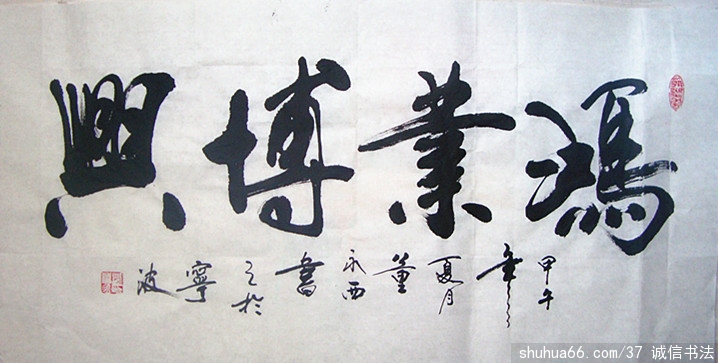 鴻業博興
甲午年夏月董永西書之於寧波
shuhua66.com/37 诚信书法